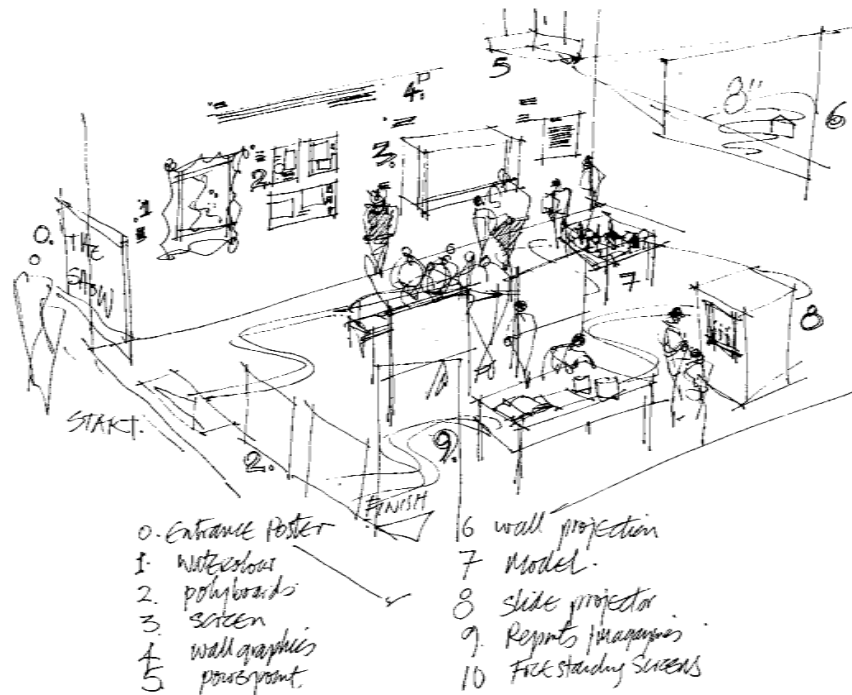 5
4.
8"
6
3.
2
1
0.
THE
SHOW
7
8
START.
2.
9.
FINISH
0. Entrance Poster
1. watercolour
2. polyboards
3. screen
4 wall graphics
5. powerpoint.
6 wall projection
7 Model.
8 slide projector
9. Reports/magazines
10 Free standing Screens